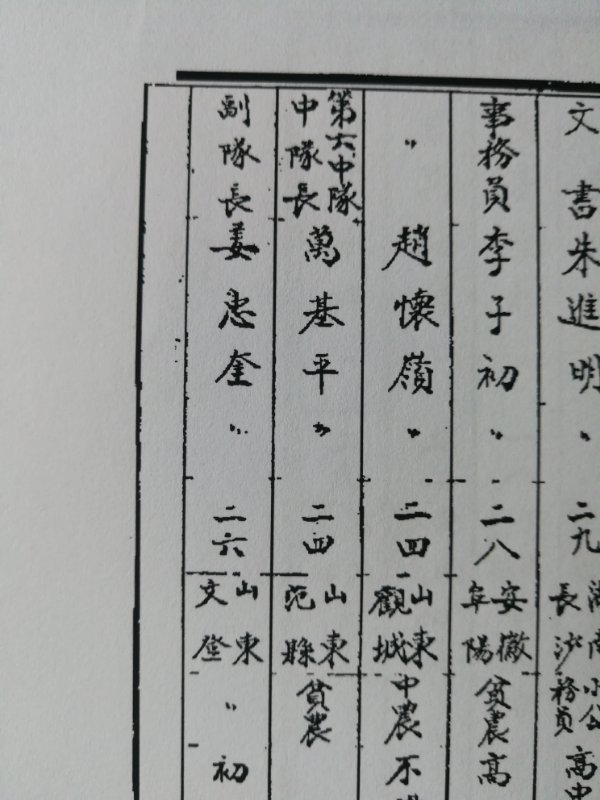 文書 朱進明 〃 二九 湖南長沙 小公務員 高中
事務員 李子初 〃 二八 安徽阜陽 貧農 高
〃 趙懷嶺 〃 二四 山東觀城 中農 不
第六中隊中隊長 萬基平 〃 二四 山東范縣 貧農
副隊長 姜忠奎 〃 二六 山東文登 〃 初